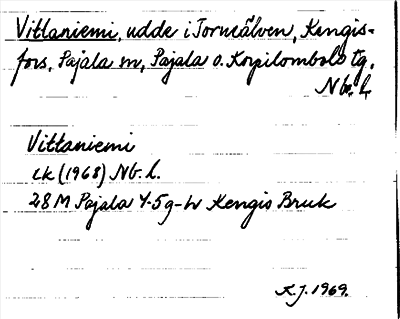 Vittaniemi, udde i Torneälven, Kengis-
fors, Pajala sn, Pajala o. Korpilombolo tg.
Nb. L.
Vittaniemi
ek (1968) Nb. L.
28 M Pajala 4-5 g-h Kengis Bruk
K.J. 1969.